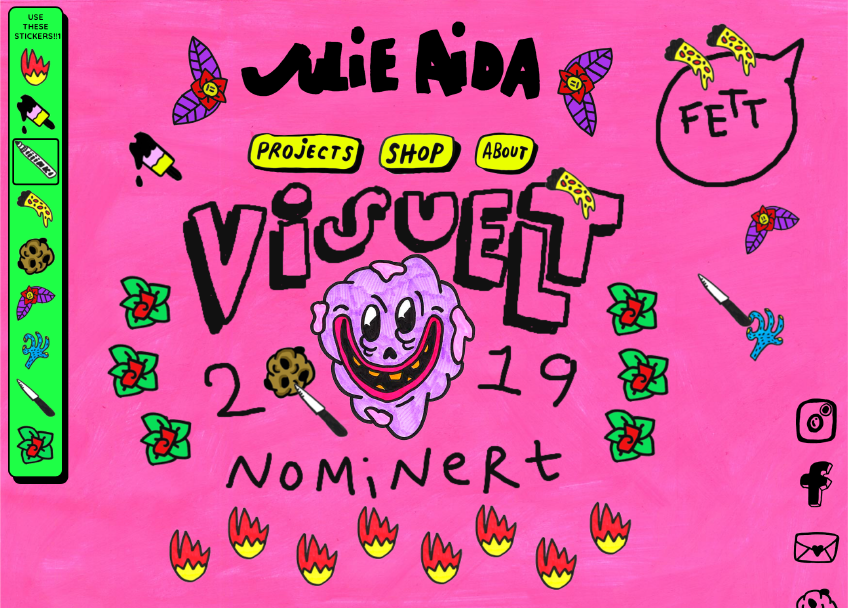 USE
THESE
STICKERS!!1
JULIE AIDA
FETT
PROJECTS
SHOP
ABOUT
ViSUELT
2019
NOMiNeRt